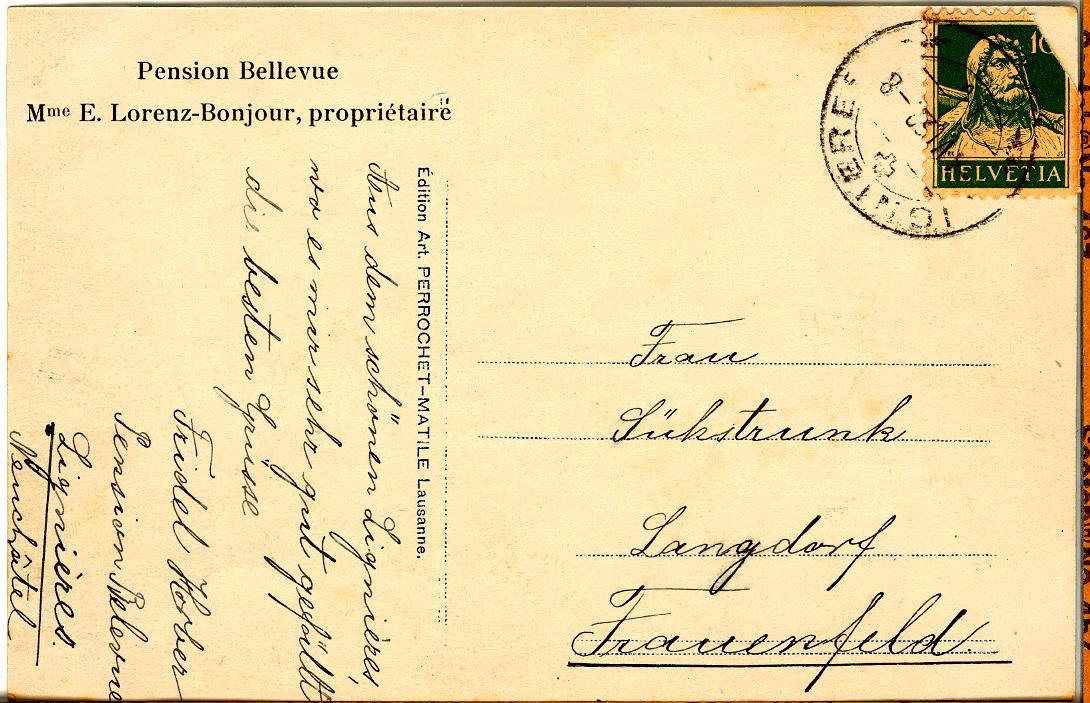 Pension Bellevue
Mme E. Lorenz-Bonjour, propriétaire
Aus dem schönen Lignières,
wo es mir sehr gut gefällt
die besten Grüsse
Fridel Hober
Pension Belevue
Lignières.
Neuchâtel
Édition Art. PERROCHET-MATILE Lausanne.
10
HELVETIA
IGNIÈRE
Frau
Sükstrunk
Langdorf
Frauenfeld.